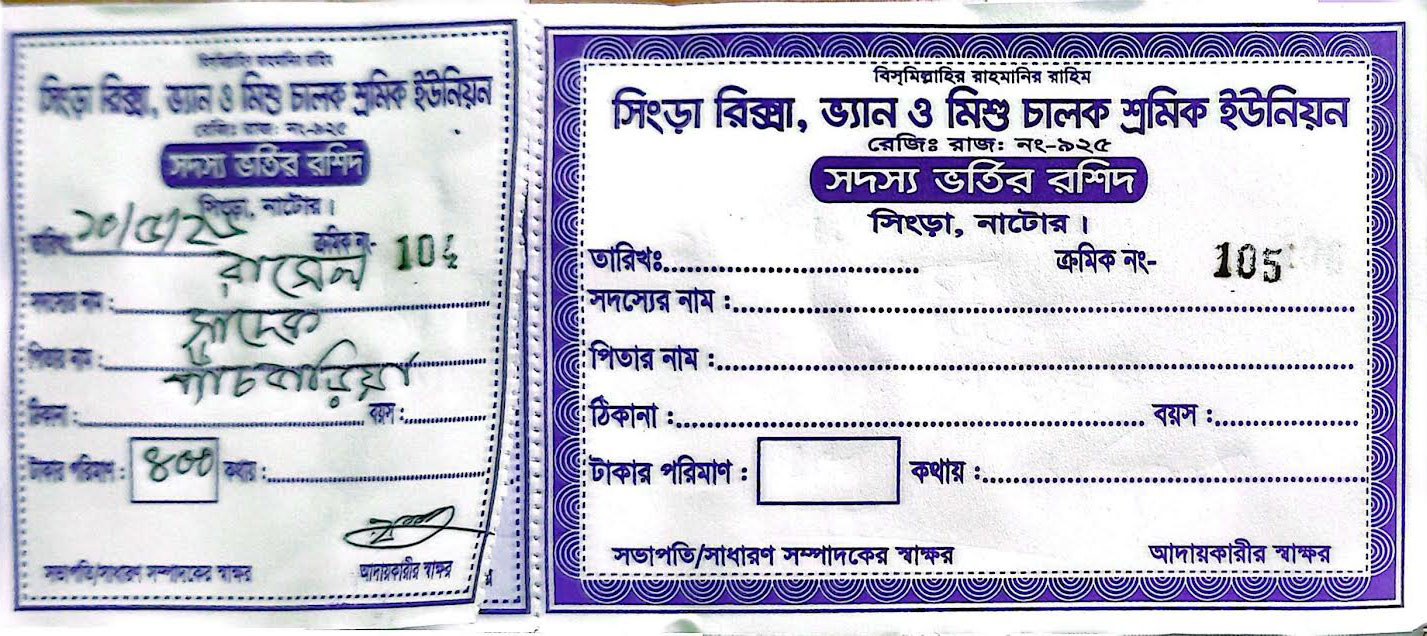 বিসমিল্লাহির রাহমানির রাহিম
সিংড়া রিক্সা, ভ্যান ও মিশু চালক শ্রমিক ইউনিয়ন
রেজিঃ রাজ: নং-৯২৫
সদস্য ভর্তির রশিদ
সিংড়া, নাটোর।
তারিখ: ২০/৫/২৫ ক্রমিক নং- 104
সদস্যের নাম : রাসেল
পিতার নাম : সাদেক
ঠিকানা : পাঁচবাড়িয়া বয়স :
টাকার পরিমাণ : ৪০০ কথায় :
সভাপতি/সাধারণ সম্পাদকের স্বাক্ষর আদায়কারীর স্বাক্ষর
বিস্‌মিল্লাহির রাহমানির রাহিম
সিংড়া রিক্সা, ভ্যান ও মিশু চালক শ্রমিক ইউনিয়ন
রেজিঃ রাজ: নং-৯২৫
সদস্য ভর্তির রশিদ
সিংড়া, নাটোর।
তারিখঃ ক্রমিক নং- 105
সদস্যের নাম :
পিতার নাম :
ঠিকানা : বয়স :
টাকার পরিমাণ : কথায় :
সভাপতি/সাধারণ সম্পাদকের স্বাক্ষর আদায়কারীর স্বাক্ষর